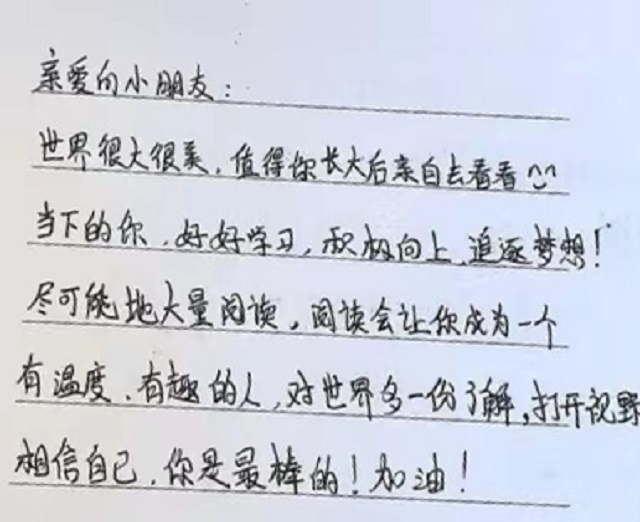 亲爱的小朋友：
世界很大很美，值得你长大后亲自去看看^^
当下的你，好好学习，积极向上，追逐梦想！
尽可能地大量阅读，阅读会让你成为一个
有温度、有趣的人，对世界多一份了解，打开视野
相信自己，你是最棒的！加油！